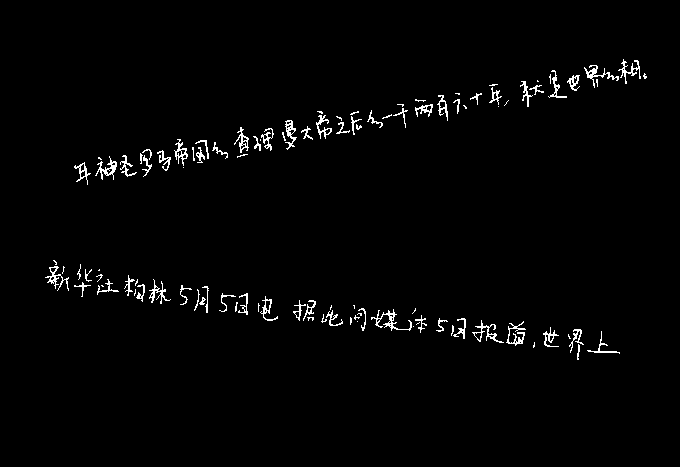 耳神圣罗马帝国的查理曼大帝之后的一千两百六十年,就是世界的相。
新华社柏林5月5日电 据此间媒体5日报道,世界上